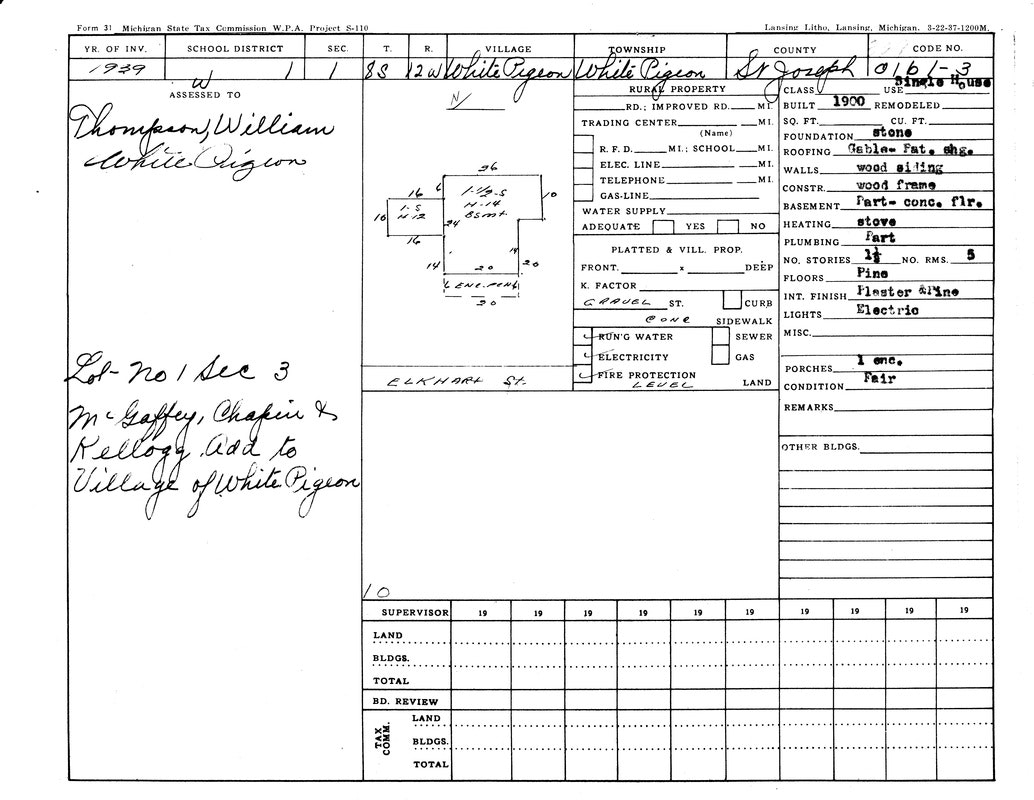 Form 31 Michigan State Tax Commission W.P.A. Project S-110
Lansing Litho, Lansing, Michigan. 3-22-37-1200M.
YR. OF INV. SCHOOL DISTRICT SEC. T. R. VILLAGE TOWNSHIP COUNTY CODE NO.
1939 W 1 1 8S 12W White Pigeon White Pigeon St Joseph 0161-3
ASSESSED TO
Thompson, William
White Pigeon
Lot-No 1 Sec 3
McGaffey, Chapin &
Kellogg Add to
Village of White Pigeon
N
36
16 6 1-1/2-S 10
1-S H-14
H-12 Bsmt.
10 24
16 14
14 20 20
ENC. PCH
20
ELKHART St.
10
RURAL PROPERTY
RD.; IMPROVED RD. MI.
TRADING CENTER MI.
(Name)
R. F. D. MI.; SCHOOL MI.
ELEC. LINE MI.
TELEPHONE MI.
GAS-LINE
WATER SUPPLY
ADEQUATE YES NO
PLATTED & VILL. PROP.
FRONT. x DEEP
K. FACTOR
GRAVEL ST. CURB
CONC SIDEWALK
RUN'G WATER SEWER
ELECTRICITY GAS
FIRE PROTECTION
LEVEL LAND
CLASS USE Single House
BUILT 1900 REMODELED
SQ. FT. CU. FT.
FOUNDATION stone
ROOFING Gable- Pat. shg.
WALLS wood siding
CONSTR. wood frame
BASEMENT Part- conc. flr.
HEATING stove
PLUMBING Part
NO. STORIES 1½ NO. RMS. 5
FLOORS Pine
INT. FINISH Plaster & Pine
LIGHTS Electric
MISC.
PORCHES 1 enc.
CONDITION Fair
REMARKS
OTHER BLDGS.
SUPERVISOR 19 19 19 19 19 19 19 19 19
LAND
BLDGS.
TOTAL
BD. REVIEW
TAX COMM.
LAND
BLDGS.
TOTAL